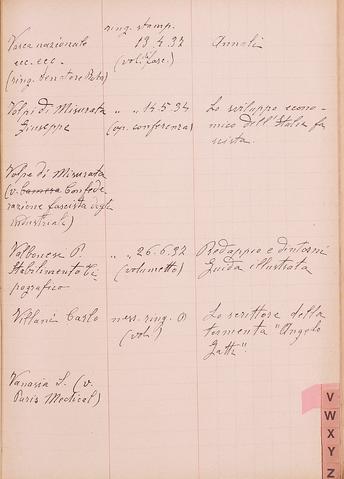 ring. stamp.
Vasca nazionale 13.4.32 Annali
ecc. ecc. (vol. fasc.)
(ring. Senatore
Volpi di Misurata " " 14.5.34 Lo sviluppo econo-
Giuseppe (op. conferenza) mico dell'Italia fa
scista.
Volpi di Misurata
(v. Camera Confede
razione fascista degli
industriali)
Valbonesi P. " " 26.6.32 Predappio e dintorni
Stabilimento ti (volumetto) Guida illustrata
pografico
Villani Carlo ness. ring. Lo scrittore della
(vol.) tormenta "Angelo
Gatti".
Vanasia S. (v.
Paris Medical)
V
W
X
Y
Z